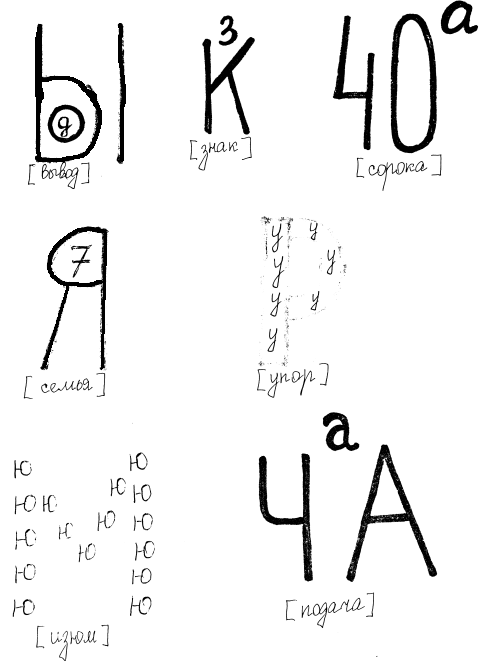 Ы
д
[вывод]
з
К
[знак]
40 а
[сорока]
Я
7
[семья]
у у
у у
у у
у
[упор]
Ю Ю
Ю
Ю Ю Ю
Ю Ю Ю Ю
Ю Ю
Ю Ю
Ю Ю
[изюм]
а
ЧА
[подача]